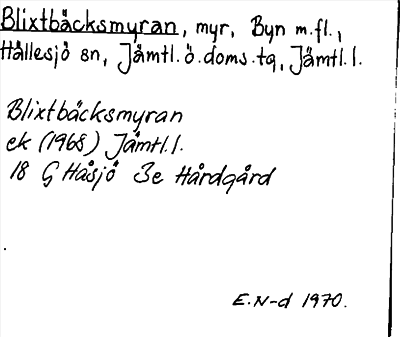 Blixtbäcksmyran, myr, Byn m.fl.,
Hällesjö sn, Jämtl.ö.doms.tg, Jämtl.l.
Blixtbäcksmyran
ek (1968) Jämtl.l.
18 G Håsjö 3e Hårdgård
E.N-d 1970.